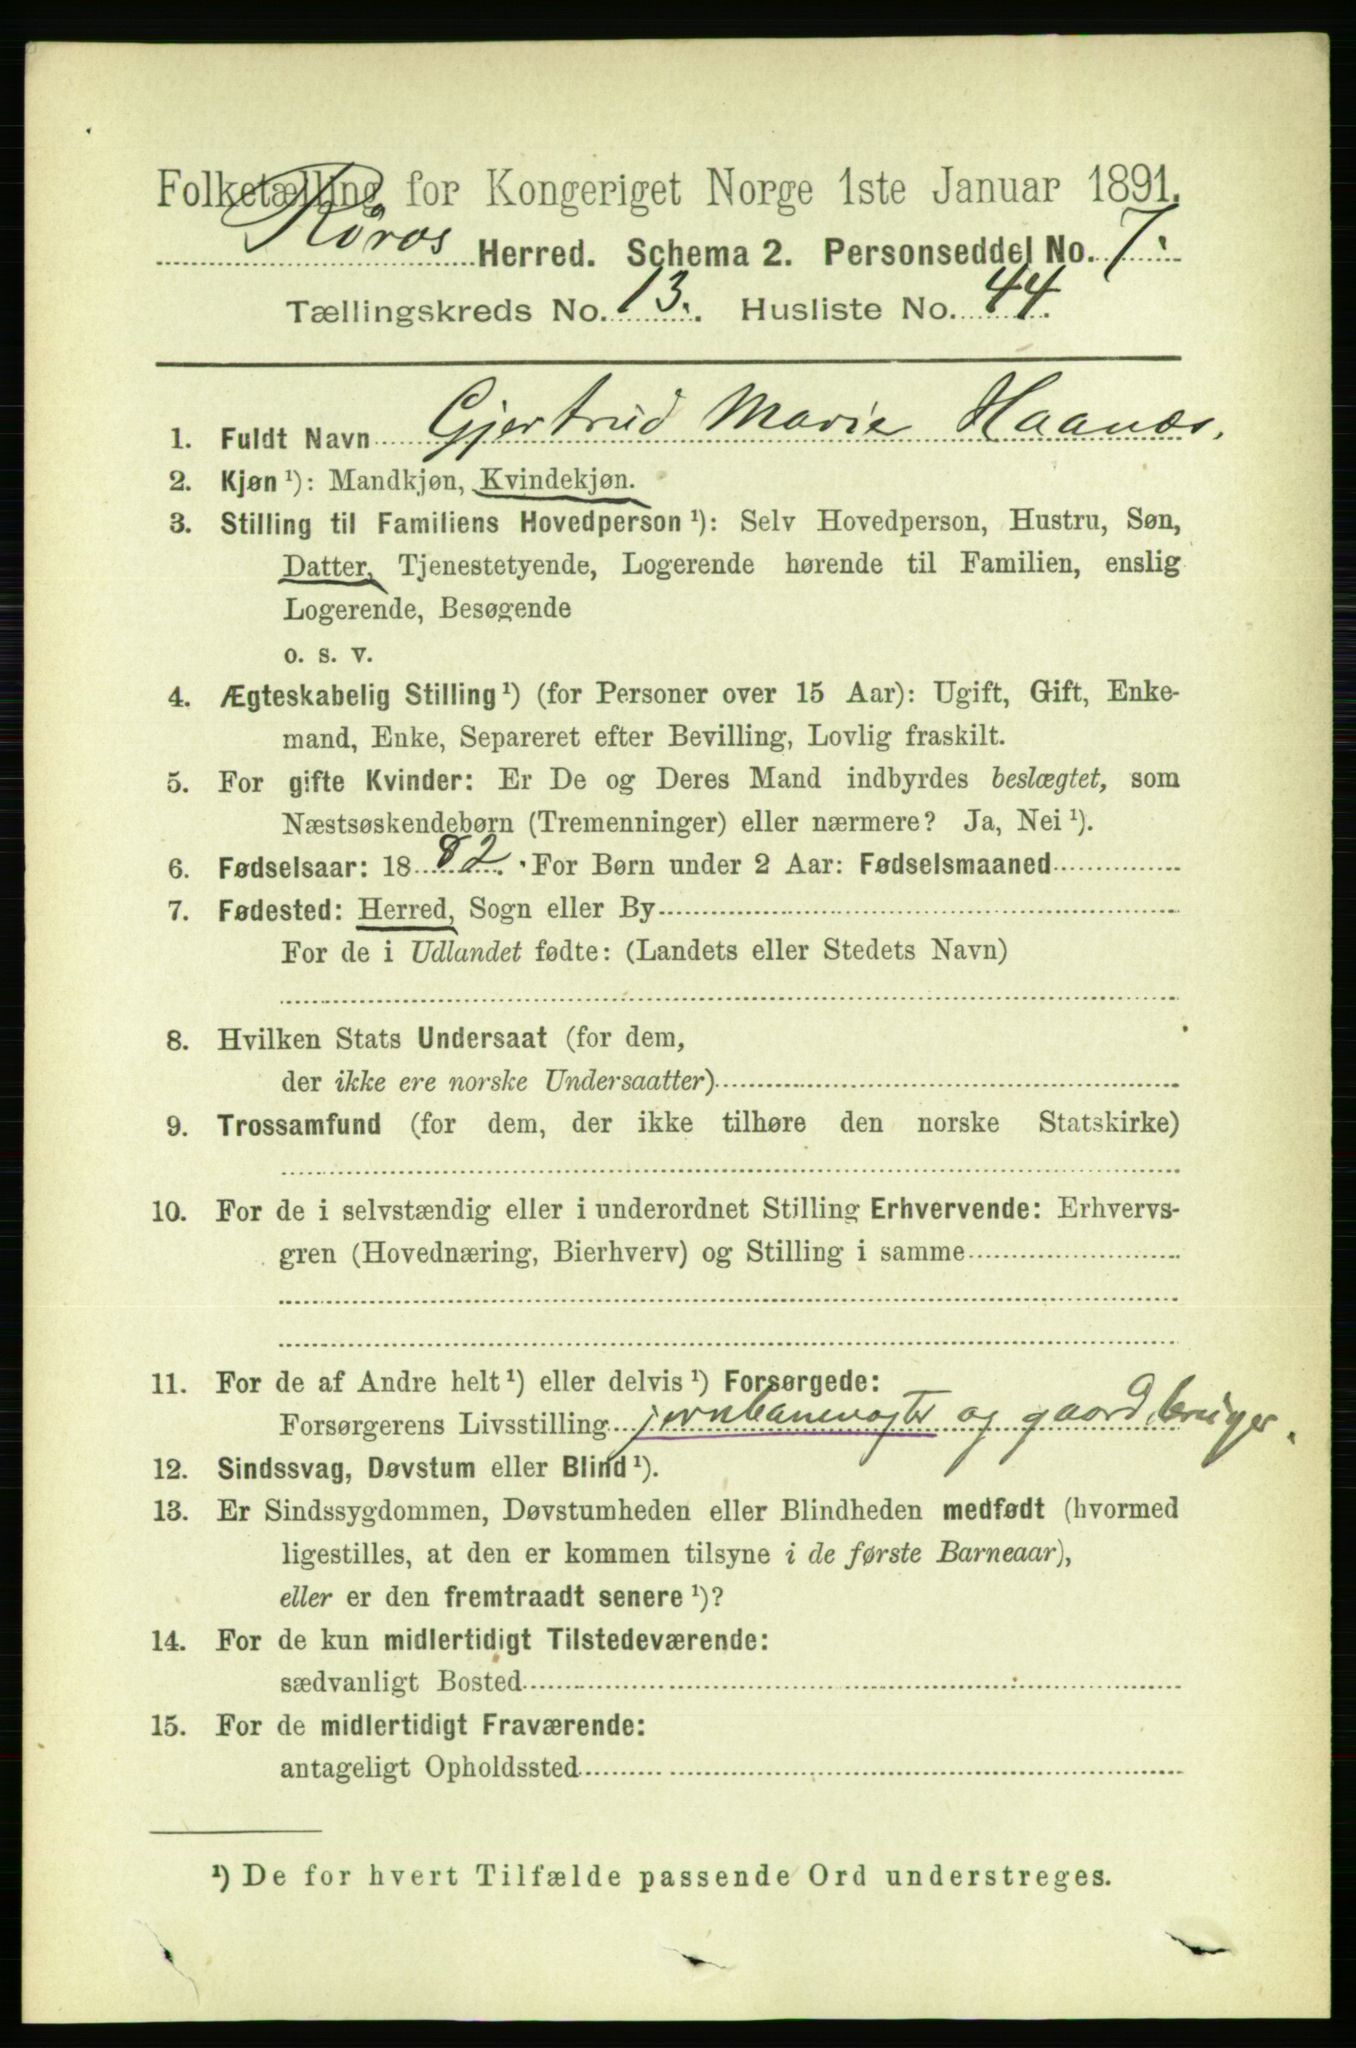 Folketælling for Kongeriget Norge 1ste Januar 1891.
Röros Herred. Schema 2. Personseddel No. 7.
Tællingskreds No. 13. Husliste No. 44.
1. Fuldt Navn Gjertrud Marie Haanæs.
2. Kjøn ¹): Mandkjøn, Kvindekjøn.
3. Stilling til Familiens Hovedperson ¹): Selv Hovedperson, Hustru, Søn,
Datter, Tjenestetyende, Logerende hørende til Familien, enslig
Logerende, Besøgende
o. s. v.
4. Ægteskabelig Stilling ¹) (for Personer over 15 Aar): Ugift, Gift, Enke-
mand, Enke, Separeret efter Bevilling, Lovlig fraskilt.
5. For gifte Kvinder: Er De og Deres Mand indbyrdes beslægtet, som
Næstsøskendebørn (Tremenninger) eller nærmere? Ja, Nei ¹).
6. Fødselsaar: 1882. For Børn under 2 Aar: Fødselsmaaned
7. Fødested: Herred, Sogn eller By
For de i Udlandet fødte: (Landets eller Stedets Navn)
8. Hvilken Stats Undersaat (for dem,
der ikke ere norske Undersaatter)
9. Trossamfund (for dem, der ikke tilhøre den norske Statskirke)
10. For de i selvstændig eller i underordnet Stilling Erhvervende: Erhvervs-
gren (Hovednæring, Bierhverv) og Stilling i samme
11. For de af Andre helt ¹) eller delvis ¹) Forsørgede:
Forsørgerens Livsstilling jernbanevogter og gaardbruger.
12. Sindssvag, Døvstum eller Blind ¹).
13. Er Sindssygdommen, Døvstumheden eller Blindheden medfødt (hvormed
ligestilles, at den er kommen tilsyne i de første Barneaar),
eller er den fremtraadt senere ¹)?
14. For de kun midlertidigt Tilstedeværende:
sædvanligt Bosted
15. For de midlertidigt Fraværende:
antageligt Opholdssted
¹) De for hvert Tilfælde passende Ord understreges.